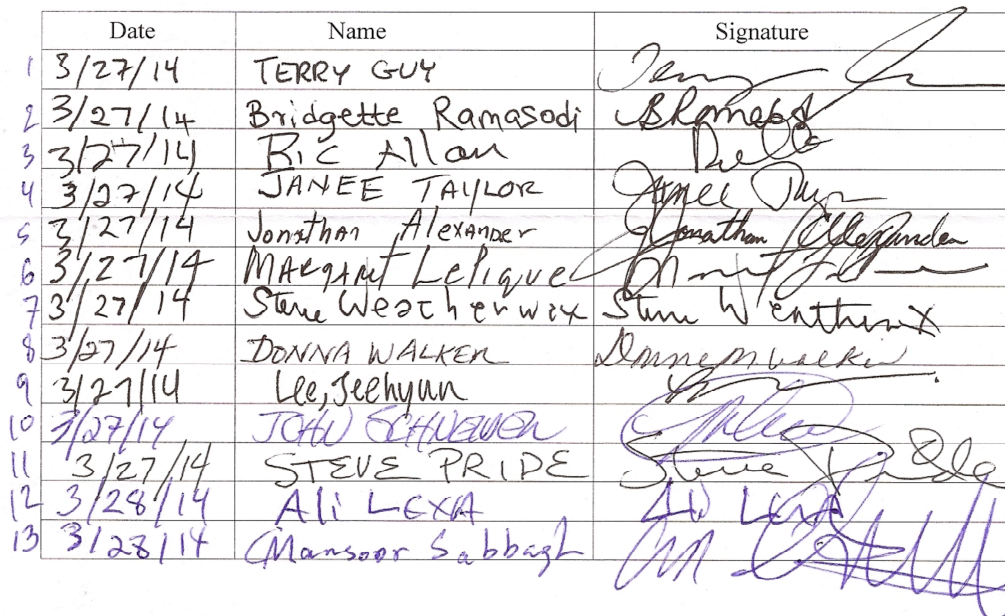 Date Name Signature
1 3/27/14 TERRY GUY
2 3/27/14 Bridgette Ramasodi
3 3/27/14 Ric Allan
4 3/27/14 JANEE TAYLOR Janee
5 3/27/14 Jonathan Alexander Jonathan Allexander
6 3/27/14 MARgARET LePique
7 3/27/14 Steve Weatherwix Steve
8 3/27/14 DONNA WALKER
9 3/27/14 Lee, Jeehyun
10 3/27/14 JOHN
11 3/27/14 STEVE PRIDE Steve
12 3/28/14 Ali LEXA Ali LEXA
13 3/28/14 Mansoor Sabbagh